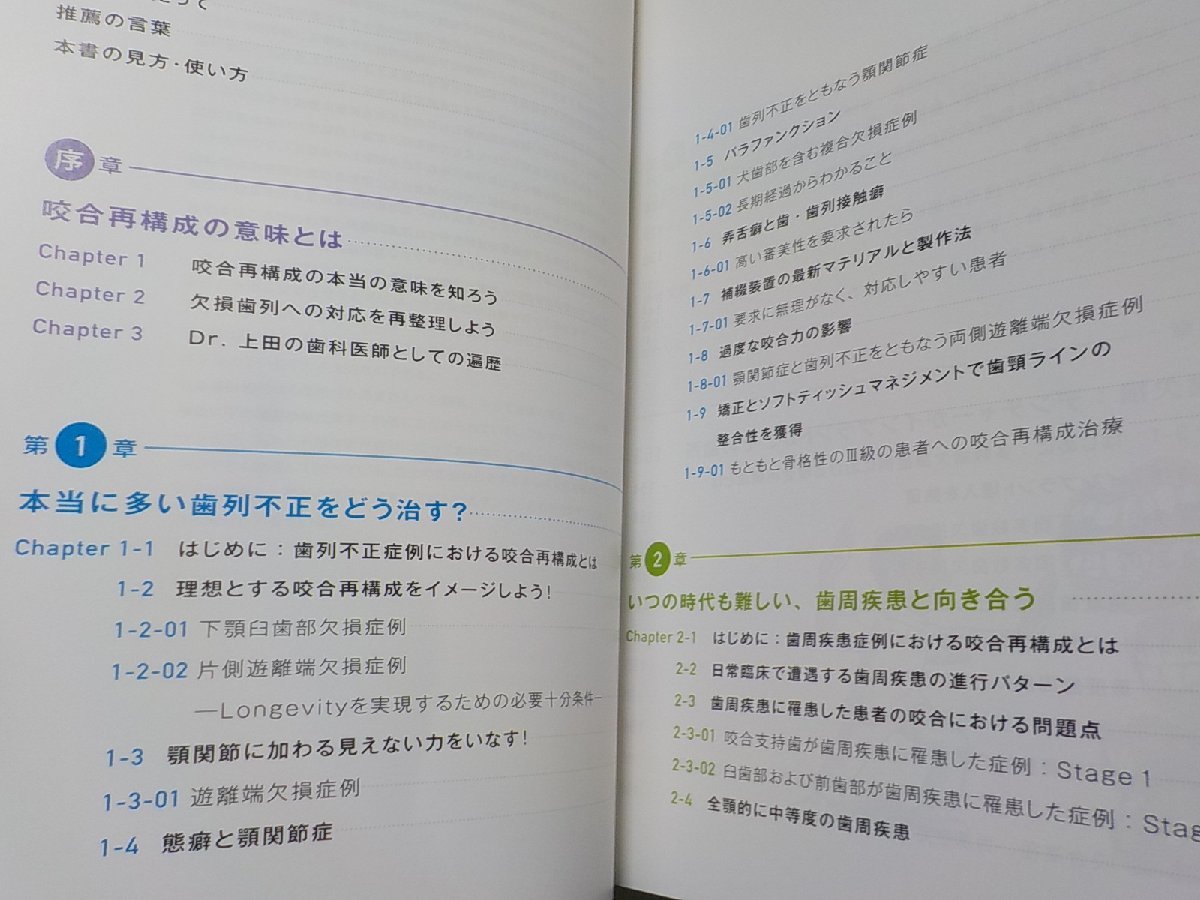 推薦の言葉
本書の見方・使い方
序章
咬合再構成の意味とは
Chapter 1 咬合再構成の本当の意味を知ろう
Chapter 2 欠損歯列への対応を再整理しよう
Chapter 3 Dr. 上田の歯科医師としての遍歴
第1章
本当に多い歯列不正をどう治す?
Chapter 1-1 はじめに：歯列不正症例における咬合再構成とは
1-2 理想とする咬合再構成をイメージしよう!
1-2-01 下顎臼歯部欠損症例
1-2-02 片側遊離端欠損症例
―Longevityを実現するための必要十分条件―
1-3 顎関節に加わる見えない力をいなす!
1-3-01 遊離端欠損症例
1-4 態癖と顎関節症
1-4-01 歯列不正をともなう顎関節症
1-5 パラファンクション
1-5-01 犬歯部を含む複合欠損症例
1-5-02 長期経過からわかること
1-6 弄舌癖と歯・歯列接触癖
1-6-01 高い審美性を要求されたら
1-7 補綴装置の最新マテリアルと製作法
1-7-01 要求に無理がなく、対応しやすい患者
1-8 過度な咬合力の影響
1-8-01 顎関節症と歯列不正をともなう両側遊離端欠損症例
1-9 矯正とソフトティッシュマネジメントで歯頸ラインの
整合性を獲得
1-9-01 もともと骨格性のⅢ級の患者への咬合再構成治療
第2章
いつの時代も難しい、歯周疾患と向き合う
Chapter 2-1 はじめに：歯周疾患症例における咬合再構成とは
2-2 日常臨床で遭遇する歯周疾患の進行パターン
2-3 歯周疾患に罹患した患者の咬合における問題点
2-3-01 咬合支持歯が歯周疾患に罹患した症例：Stage 1
2-3-02 臼歯部および前歯部が歯周疾患に罹患した症例：
2-4 全顎的に中等度の歯周疾患